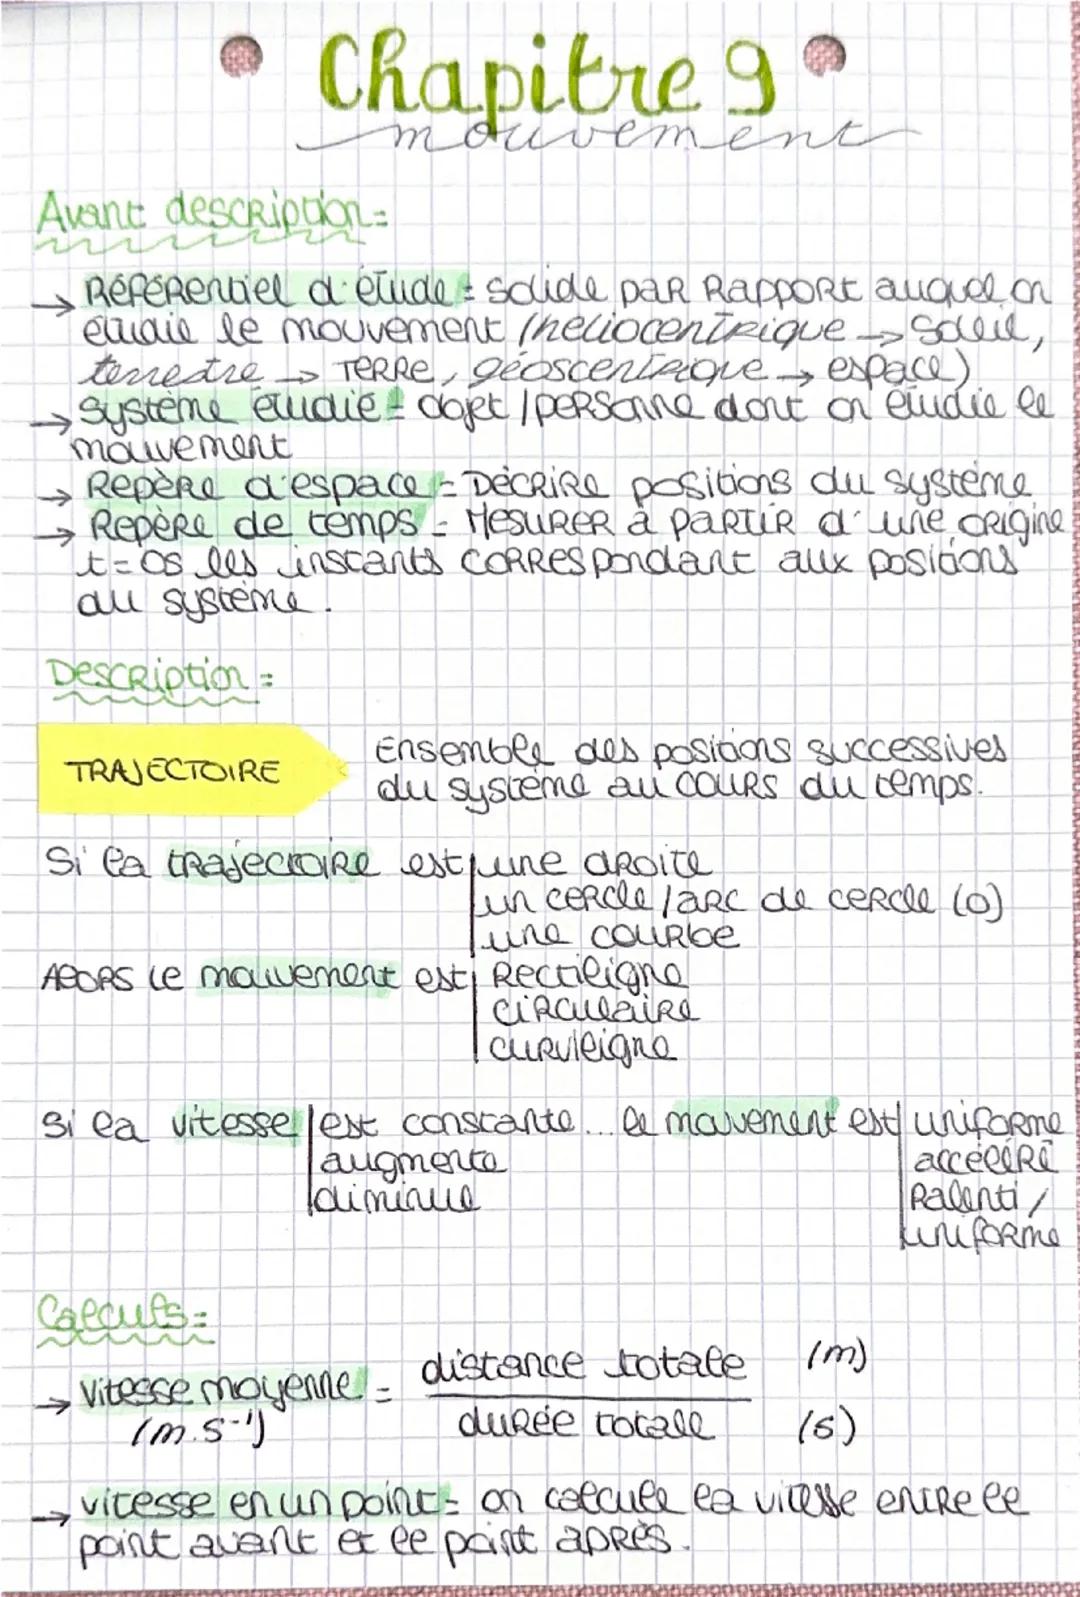 Chapitre 9
mouvement
Avant description :
→ Référentiel d'étude : solide par rapport auquel on
étudie le mouvement (héliocentrique → Soleil,
terrestre → Terre, géoscentrique → espace)
→ système étudié : objet / personne dont on étudie le
mouvement
→ Repère d'espace : Décrire positions du système
→ Repère de temps : Mesurer à partir d'une origine
t=0s les instants correspondant aux positions
du système.
Description :
TRAJECTOIRE
Ensemble des positions successives
du système au cours du temps.
Si la trajectoire est | une droite
un cercle / arc de cercle (O)
une courbe
Alors le mouvement est | Rectiligne
circulaire
curvleigne
Si la vitesse | est constante... le mouvement est | uniforme
augmente accéléré
diminue Ralenti /
uniforme
Calculs :
→ vitesse moyenne = distance totale (m)
(m.s⁻¹) durée totale (s)
→ vitesse en un point : on calcule la vitesse entre le
point avant et le point après.